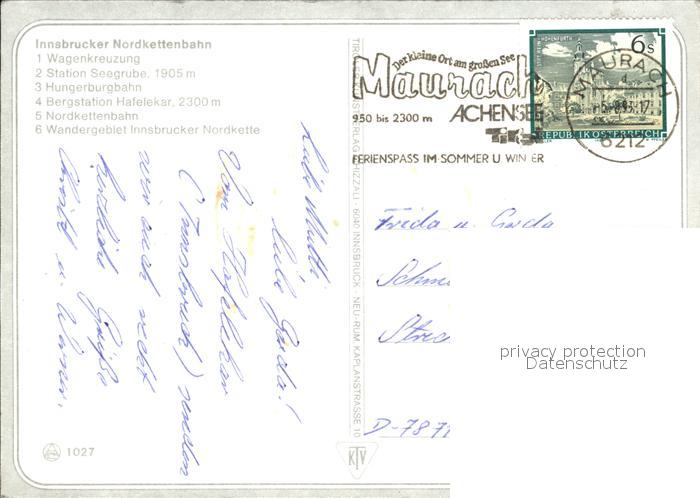 Innsbrucker Nordkettenbahn
1 Wagenkreuzung
2 Station Seegrube, 1905 m
3 Hungerburgbahn
4 Bergstation Hafelekar, 2300 m
5 Nordkettenbahn
6 Wandergebiet Innsbrucker Nordkette
Liebe Mutti
liebe Gerda!
Vom Hafelekar
(Innsbruck) senden
wir euch recht
herzliche Grüße
u. Werner.
1027
KTV
6040 INNSBRUCK - NEU-RUM, KAPLANSTRASSE 10
Der kleine Ort am großen See
Maurach
ACHENSEE
950 bis 2300 m
FERIENSPASS IM SOMMER U WIN ER
6s
REPUBLIK ÖSTERREICH
MAURACH
6212
Frieda u. Gerda
D-787
privacy protection
Datenschutz